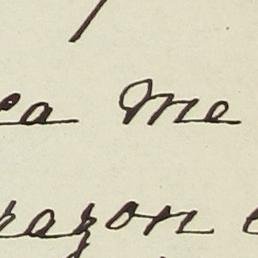 ea me
razon